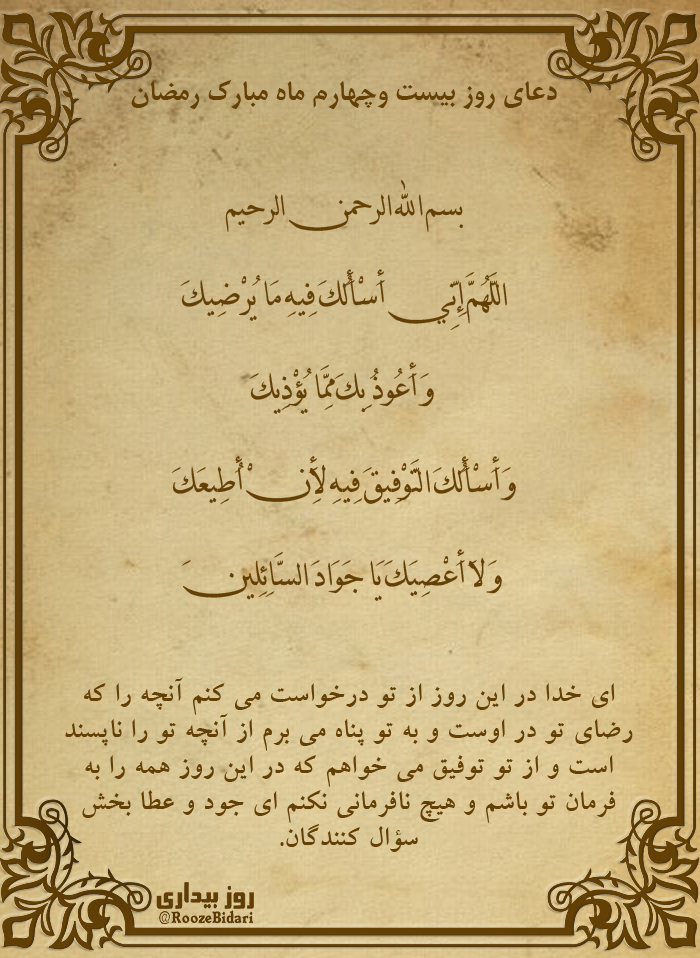 دعای روز بیست وچهارم ماه مبارک رمضان
بسم الله الرحمن الرحیم
اللَّهُمَّ إِنِّي أَسْأَلُكَ فِيهِ مَا يُرْضِيكَ
وَ أَعُوذُ بِكَ مِمَّا يُؤْذِيكَ
وَ أَسْأَلُكَ التَّوْفِيقَ فِيهِ لِأَنْ أُطِيعَكَ
وَ لا أَعْصِيَكَ يَا جَوَادَ السَّائِلِينَ
ای خدا در این روز از تو درخواست می کنم آنچه را که
رضای تو در اوست و به تو پناه می برم از آنچه تو را ناپسند
است و از تو توفیق می خواهم که در این روز همه را به
فرمان تو باشم و هیچ نافرمانی نکنم ای جود و عطا بخش
سؤال کنندگان.
روز بیداری
@RoozeBidari